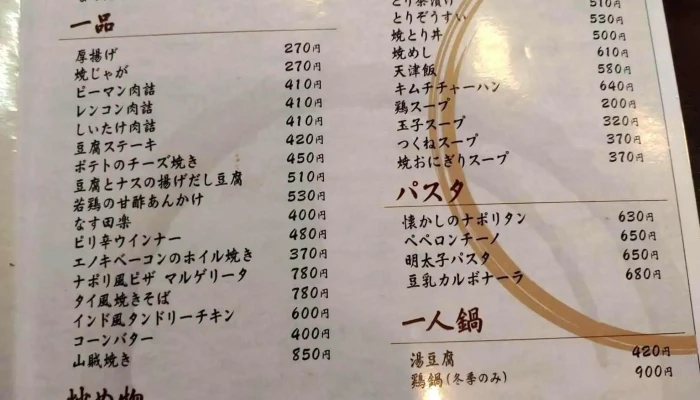 一品
厚揚げ 270円
焼じゃが 270円
ピーマン肉詰 410円
レンコン肉詰 410円
しいたけ肉詰 410円
豆腐ステーキ 420円
ポテトのチーズ焼き 450円
豆腐とナスの揚げだし豆腐 510円
若鶏の甘酢あんかけ 530円
なす田楽 400円
ピリ辛ウインナー 480円
エノキベーコンのホイル焼き 370円
ナポリ風ピザ マルゲリータ 780円
タイ風焼きそば 780円
インド風タンドリーチキン 600円
コーンバター 400円
山賊焼き 850円
炒め物
とり茶漬け 510円
とりぞうすい 530円
焼とり丼 500円
焼めし 610円
天津飯 580円
キムチチャーハン 640円
鶏スープ 200円
玉子スープ 320円
つくねスープ 370円
焼おにぎりスープ 370円
パスタ
懐かしのナポリタン 630円
ペペロンチーノ 650円
明太子パスタ 650円
豆乳カルボナーラ 680円
一人鍋
湯豆腐 420円
鶏鍋(冬季のみ) 900円